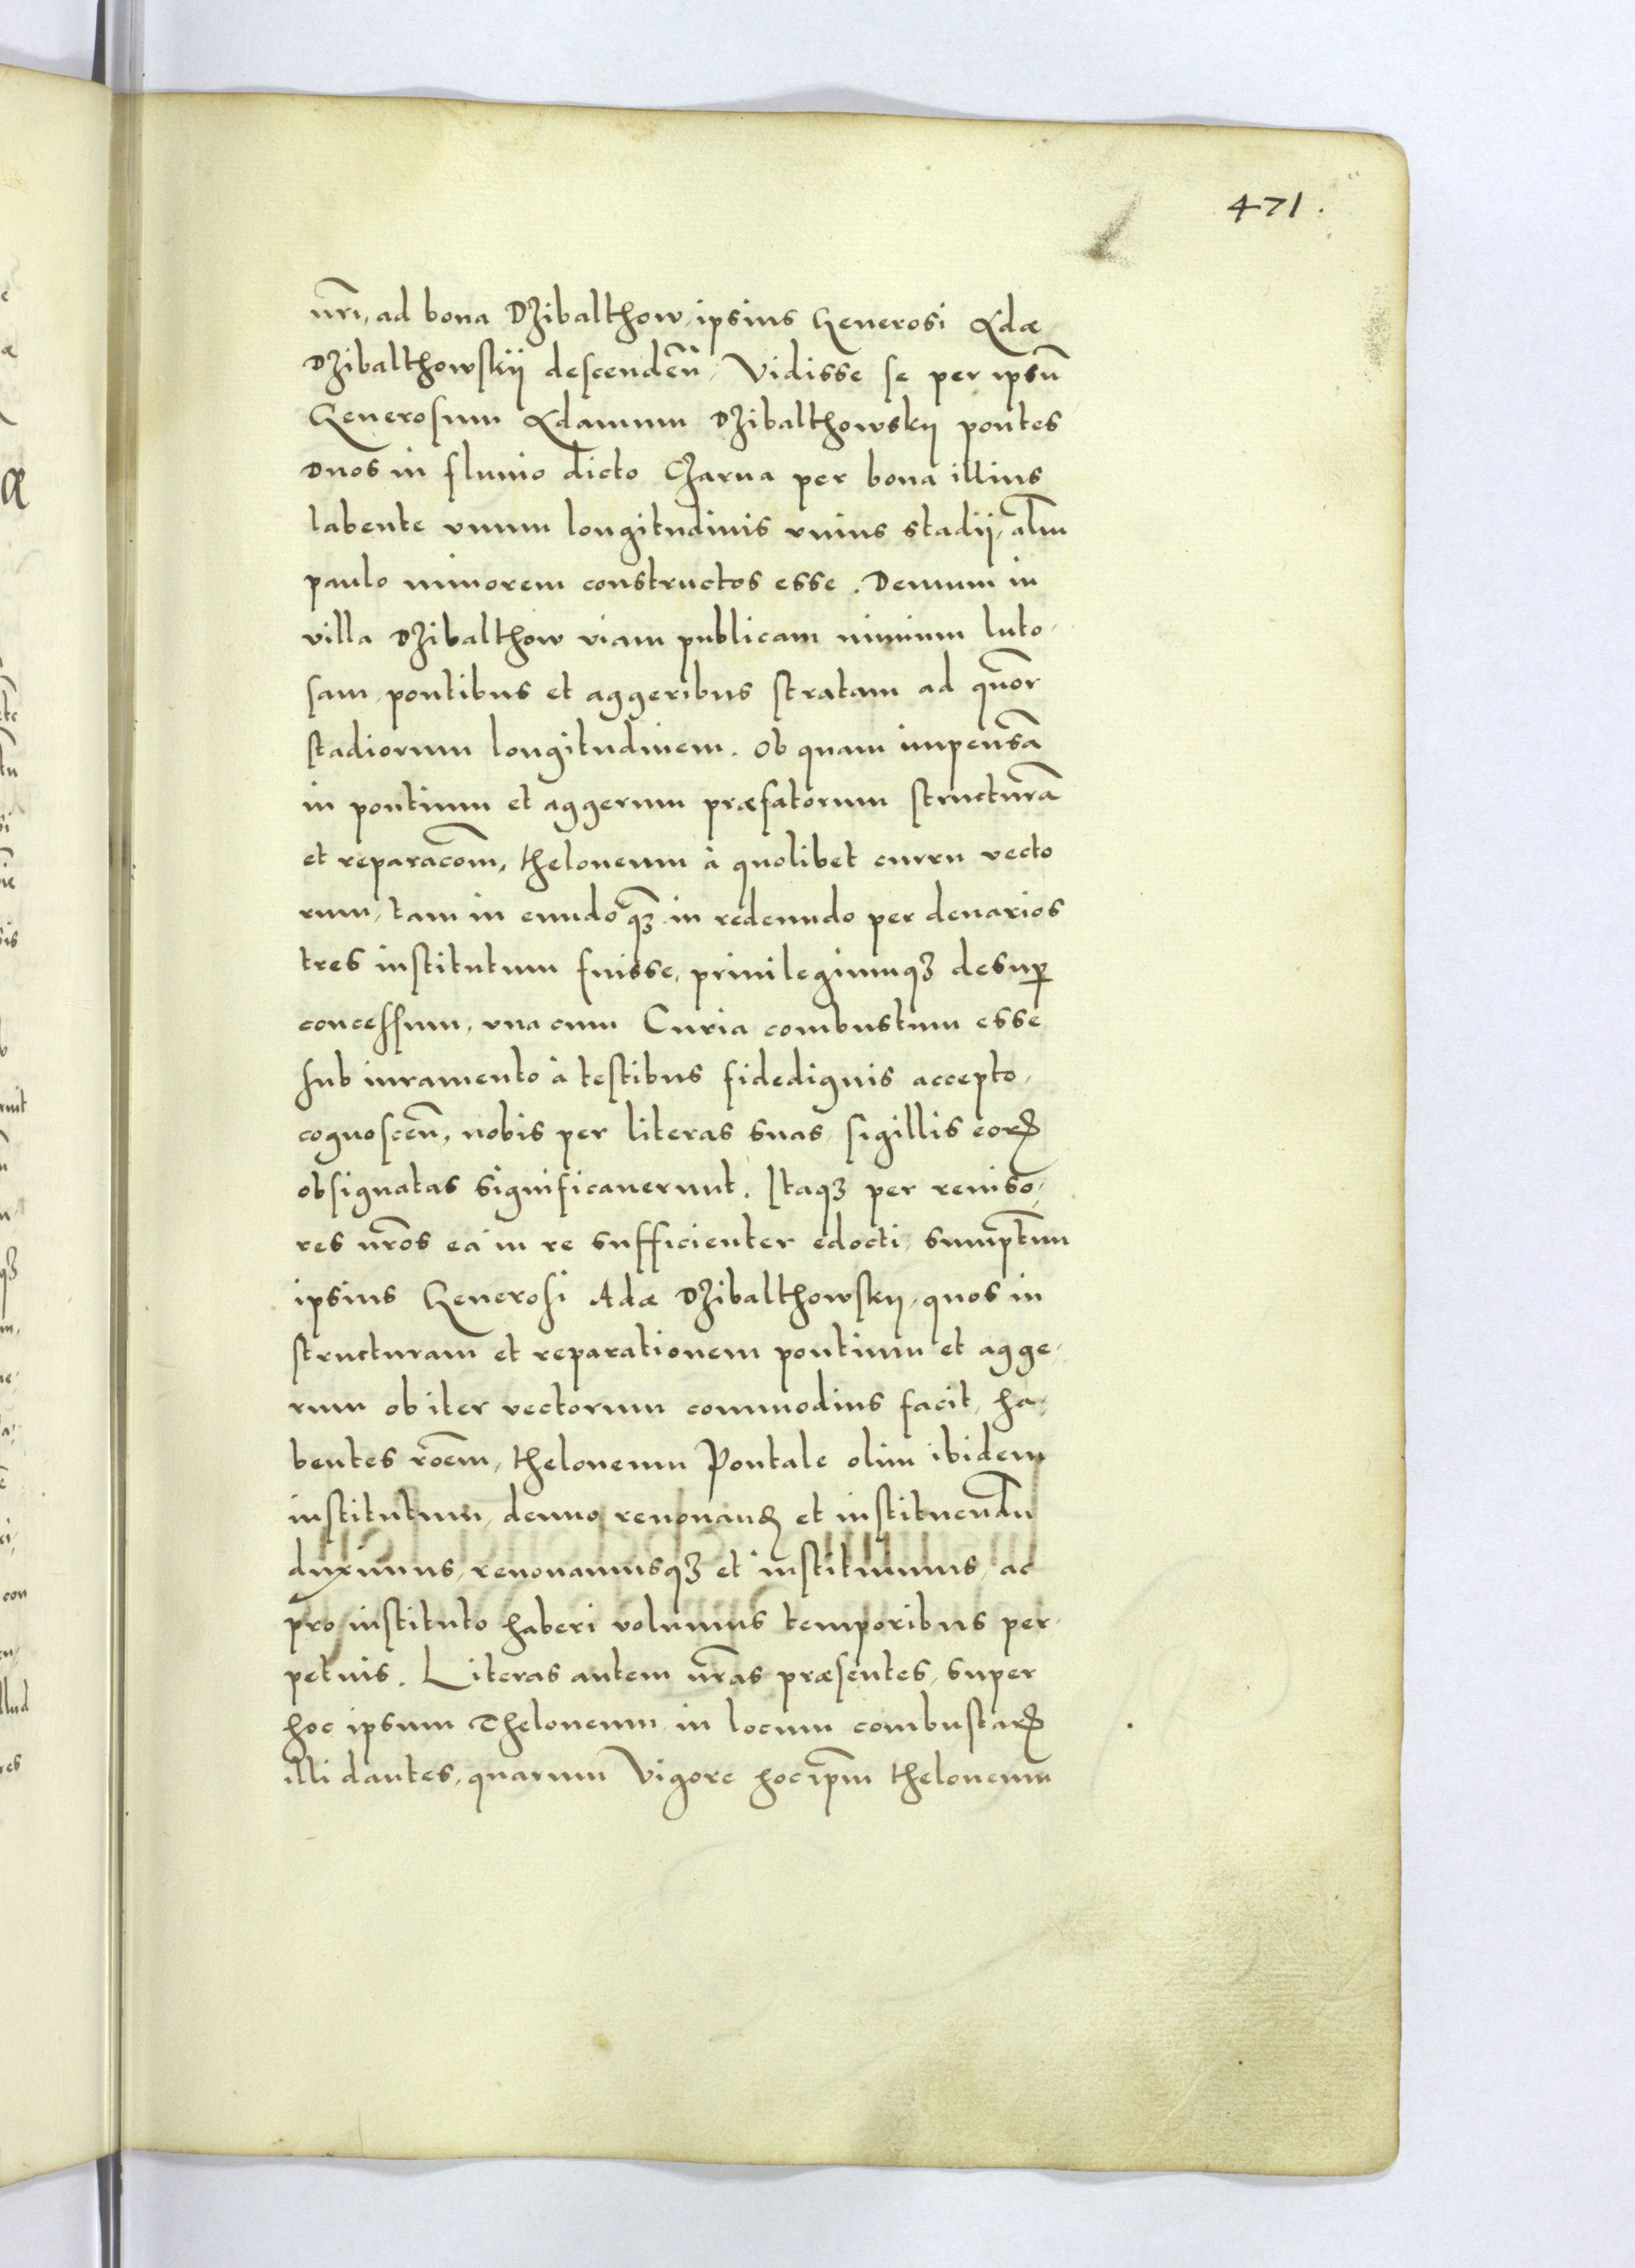 471.
nr̃i, ad bona Dzibalthow, ipsius Generosi Adæ
Dzibalthowskij descendeñ, Vidisse se per ipsũ
Generosum Adamum Dzibalthowskij pontes
duos in fluuio dicto Czarna per bona illius
labente vnum longitudinis vnius stadij, alm̃
paulo minorem constructos esse. Demum in
villa Dzibalthow viam publicam nimium luto,
sam, pontibus et aggeribus stratam ad quõr
stadiorum longitudinem. Ob quam impensã
in pontium et aggerum præfatorum structurã
et reparacõm, theloneum à quolibet curru vecto
rum, tam in eundo qꝫ in redeundo per denarios
tres institutum fuisse, priuilegiumqꝫ desuꝑ
concessum, vna cum Curia combustum esse
sub iuramento à testibus fidedignis accepto,
cognosceñ, nobis per literas suas, sigillis eorꝝ
obsignatas significauerunt. Itaqꝫ per reuiso,
res nr̃os ea in re sufficienter edocti, sumptum
ipsius Generosi Adæ Dzibalthowskij, quos in
structuram et reparationem pontium et agge,
rum ob iter vectorum commodius facit, ha,
bentes rõem, theloneum Pontale olim ibidem
institutum, denuo renouanꝝ et instituendũ
duximus, renouamusqꝫ et instituimus, ac
pro instituto haberi volumus temporibus per,
petuis. Literas autem nr̃as præsentes, super
hoc ipsum Theloneum in locum combustarꝝ
illi dantes, quarum Vigore hoc ip̃m theloneum